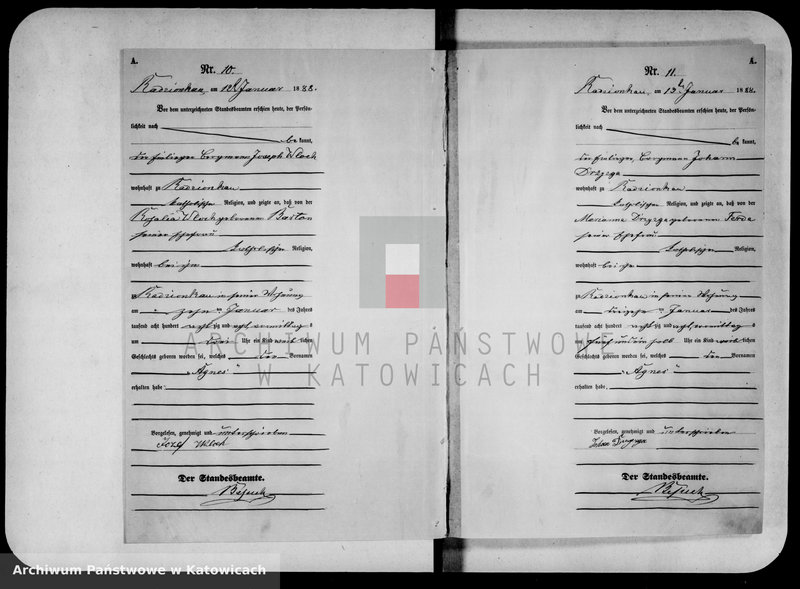 A.
Nr. 10.
Radzionkau, am 12 Januar 1888.
Vor dem unterzeichneten Standesbeamten erschien heute, der Persön-
lichkeit nach
be kannt,
der Bergmann Joseph Wloch
wohnhaft zu Radzionkau
katholischer Religion, und zeigte an, daß von der
Rosalia Wloch geborenen Baston
seiner Ehefrau
katholischer Religion,
wohnhaft bei ihm
zu Radzionkau in seiner Wohnung
am zehn ten Januar des Jahres
tausend acht hundert achtzig und acht Vormittag s
um drei Uhr ein Kind weib lichen
Geschlechts geboren worden sei, welches den Vornamen
"Agnes"
erhalten habe
Vorgelesen, genehmigt und unterschrieben
Jozef Wloch
Der Standesbeamte.
A.
Nr. 11.
Radzionkau, am 13 Januar 1888.
Vor dem unterzeichneten Standesbeamten erschien heute, der Persön-
lichkeit nach
be kannt,
der Bergmann Johann
Drzyzga
wohnhaft zu Radzionkau
katholischer Religion, und zeigte an, daß von der
Marianna Drzyzga geborenen Ferda
seiner Ehefrau
katholischer Religion,
wohnhaft bei ihm
zu Radzionkau in seiner Wohnung
am ten Januar des Jahres
tausend acht hundert achtzig und acht Vormittag s
um fünf und ein halb Uhr ein Kind weib lichen
Geschlechts geboren worden sei, welches den Vornamen
"Agnes"
erhalten habe
Vorgelesen, genehmigt und unterschrieben
Der Standesbeamte.
ARCHIWUM PAŃSTWOWE
W KATOWICACH
Archiwum Państwowe w Katowicach